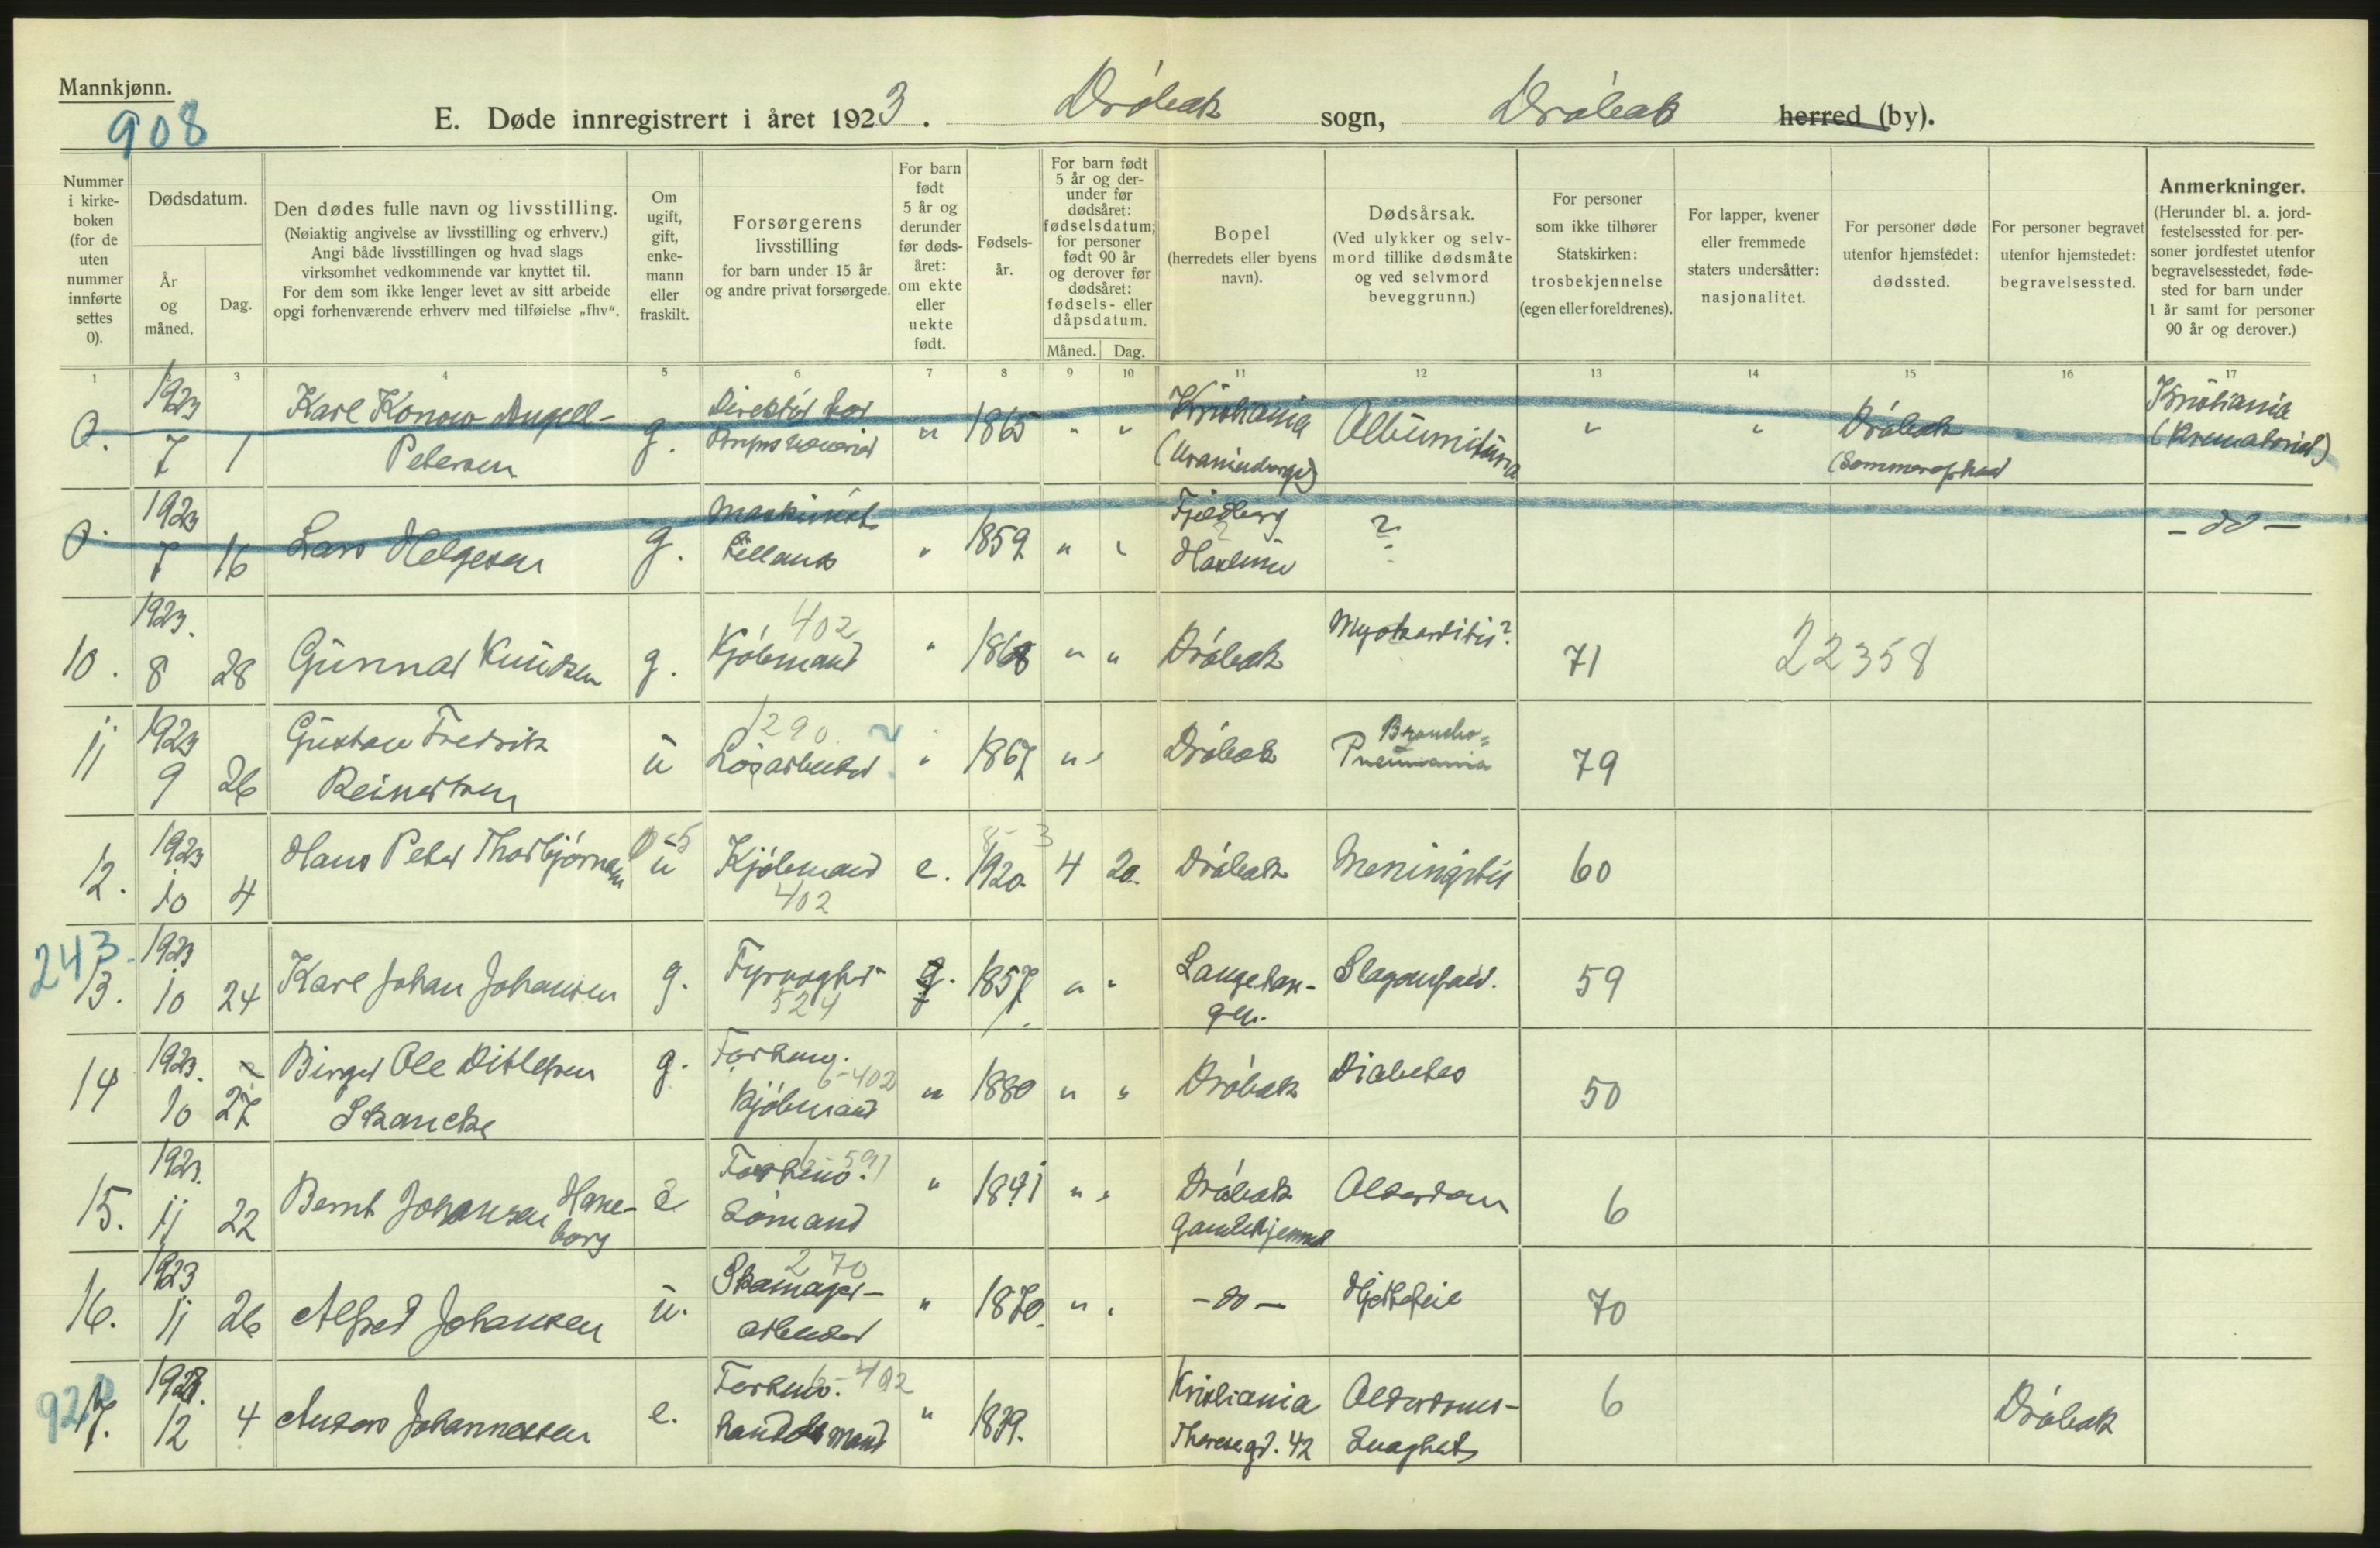 Mannkjønn.
908
E. Døde innregistrert i året 1923. Drøbak sogn, Drøbak herred (by).
Nummer i kirke-boken (for de uten nummer innførte settes 0).
Dødsdatum.
År og måned.
Dag.
Den dødes fulle navn og livsstilling.
(Nøiaktig angivelse av livsstilling og erhverv.)
Angi både livsstillingen og hvad slags
virksomhet vedkommende var knyttet til.
For dem som ikke lenger levet av sitt arbeide
opgi forhenværende erhverv med tilføielse „fhv“.
Om ugift, gift, enke-mann eller fraskilt.
Forsørgerens livsstilling
for barn under 15 år
og andre privat forsørgede.
For barn født 5 år og derunder før døds-året: om ekte eller uekte født.
Fødsels-år.
For barn født 5 år og der-under før dødsåret: fødselsdatum; for personer født 90 år og derover før dødsåret: fødsels- eller dåpsdatum.
Måned. Dag.
Bopel
(herredets eller byens navn).
Dødsårsak.
(Ved ulykker og selv-mord tillike dødsmåte og ved selvmord beveggrunn.)
For personer som ikke tilhører Statskirken: trosbekjennelse (egen eller foreldrenes).
For lapper, kvener eller fremmede staters undersåtter: nasjonalitet.
For personer døde utenfor hjemstedet: dødssted.
For personer begravet utenfor hjemstedet: begravelsessted.
Anmerkninger.
(Herunder bl. a. jord-festelsessted for per-soner jordfestet utenfor begravelsesstedet, føde-sted for barn under 1 år samt for personer 90 år og derover.)
1 3 4 5 6 7 8 9 10 11 12 13 14 15 16 17
0. 1923 7 1 Karl Konow Angell-Petersen g. Direktør " 1865 " " Kristiania (Uranienborg) Albuminuria " " Drøbak Kristiania (Krematoriet)
0. 1923 7 16 Lars Helgesen g. Maskinist " 1859 " " Fjeldberg ? ? -do-
10. 1923. 8 28 Gunnar Knudsen g. 402 Kjøbmand " 1868 " " Drøbak Myokarditis? 71 22358
11 1923 9 26 Gustav Fredrik Reinertsen u 1290 Løsarbeider " 1867 " " Drøbak Broncho= Pneumonia 79
12. 1923 10 4 Hans Peter Thorbjørnsen u Kjøbmand 402 e. 1920. 4 20. Drøbak Meningitis 60
243
13. 1923 10 24 Karl Johan Johansen g. Fyrvogter 524 1857 " " Langetangen. Slaganfald. 59
14 1923. 10 27 Birger Ole Ditlefsen Skancke g. Forhenv. 6-402 Kjøbmand " 1880 " " Drøbak Diabetes 50
15. 1923. 11 22 Bernt Johansen Haneborg e Forhenv. 591 Sømand " 1841 " " Drøbak Gamlehjemmet Alderdom 6
16. 1923 11 26 Alfred Johansen u. 270 Skomager-arbeider " 1870. " " -do- Hjertefeil 70
17. 1923. 12 4 Anders Johannessen e. Forhenv. 402 handelsmand " 1839. Kristiania Theresegd. 42 Alderdoms-Svaghet 6 Drøbak